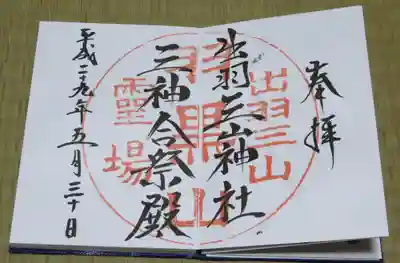 奉拝
出羽三山
出羽三山神社
開山
三神合祭殿
靈場
平成二九年五月三十日